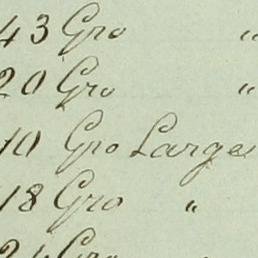 43 Gro "
20 Gro "
10 Gro Large
18 Gro "
24 Gro